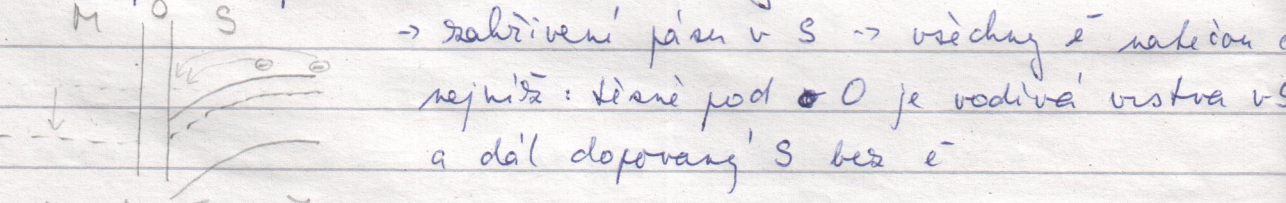 M O S
→ zakřivení pásu v S → všechny ē natečou
nejníž: těsně pod O je vodivá vrstva v S
a dál dopovaný S bez ē